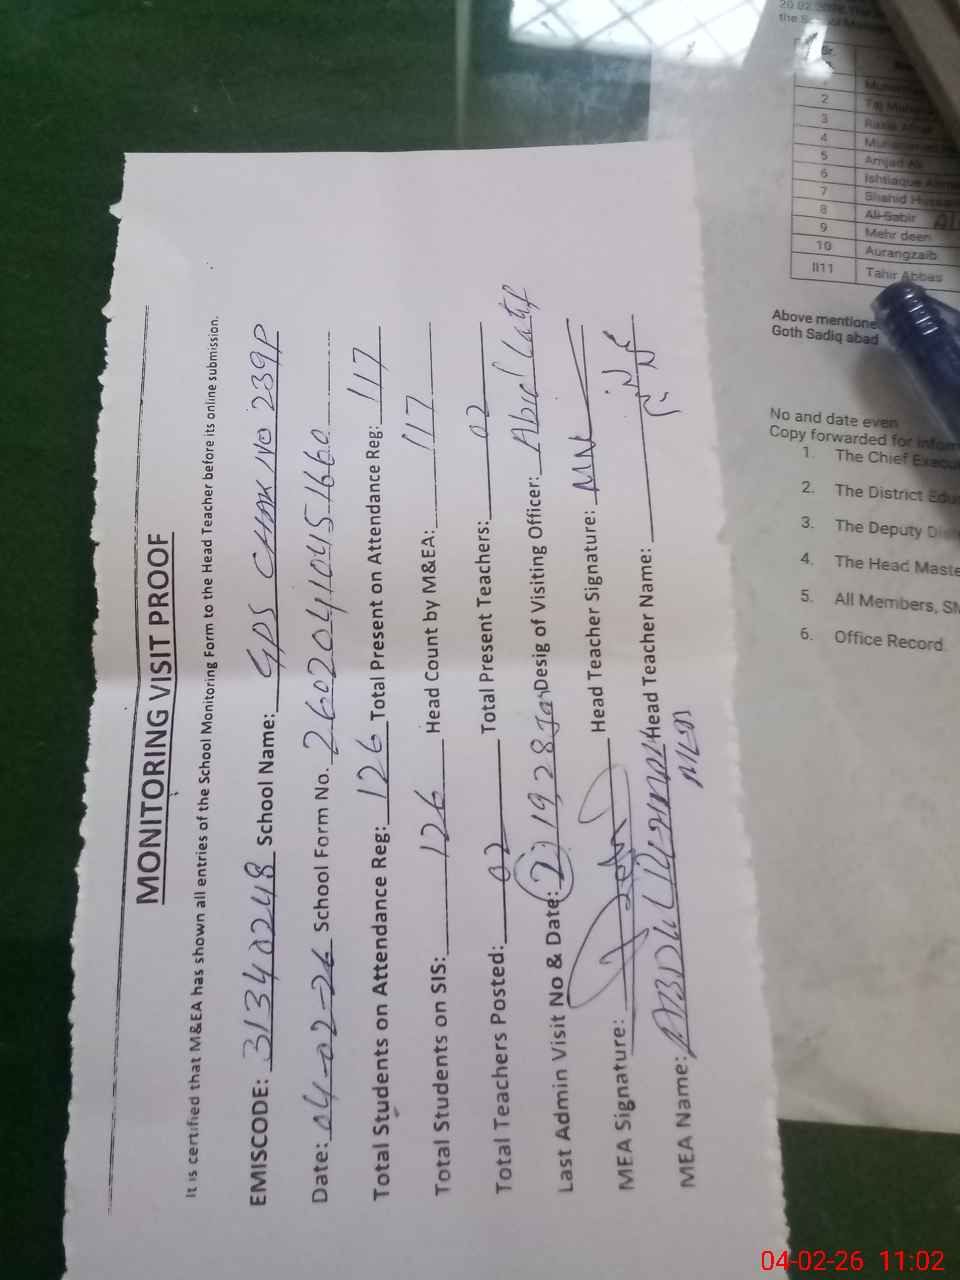 MONITORING VISIT PROOF
It is certified that M&EA has shown all entries of the School Monitoring Form to the Head Teacher before its online submission.
EMISCODE: 31340248 School Name: GPS CHAK NO 239P
Date: 04-02-26 School Form No. 26020410451660
Total Students on Attendance Reg: 126 Total Present on Attendance Reg: 117
Total Students on SIS: 126 Head Count by M&EA: 117
Total Teachers Posted: 02 Total Present Teachers: 02
Last Admin Visit No & Date: 2, 19,28 Jan Desig of Visiting Officer: Abid Latif
MEA Signature: Head Teacher Signature:
MEA Name: ABDUL Head Teacher Name:
the
Sr.
2
3
4
5 Amjad Ali
6 Ishtiaque
7 Shahid
8 Ali Sabir
9 Mehr deen
10 Aurangzaib
II11 Tahir Abbas
Above mentione
Goth Sadiq abad
No and date even
Copy forwarded for
1. The Chief
2. The District
3. The Deputy
4. The Head
5. All Members,
6. Office Record.
04-02-26 11:02